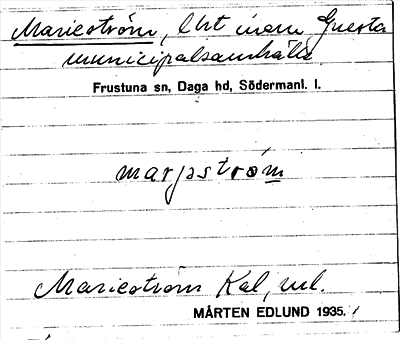 Marieström, lht inom Gnesta
municipalsamhälle
Frustuna sn, Daga hd, Södermanl. l.
marjaström
Marieström Kal, vel.
MÅRTEN EDLUND 1935.